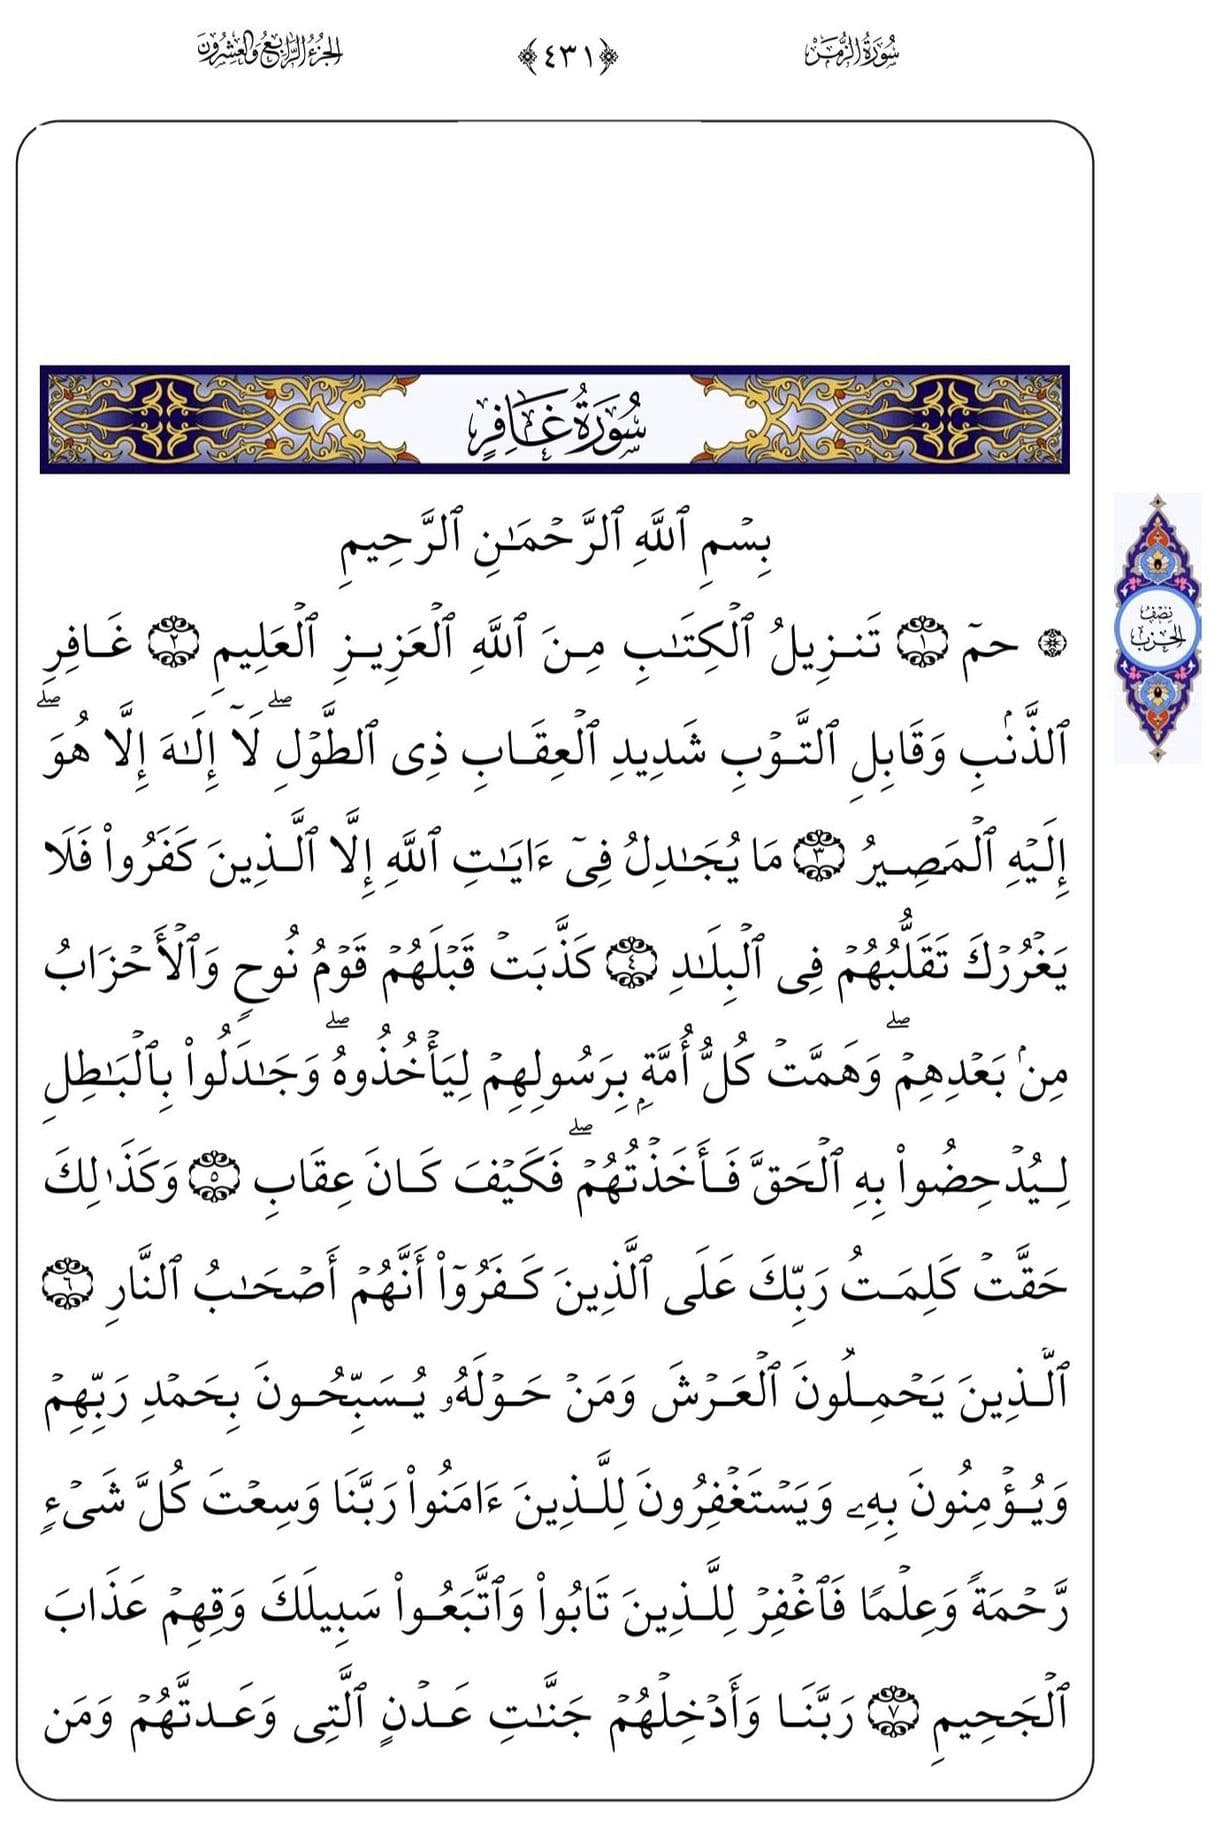 سُورَةُ الزُّمَرِ
﴿٤٣١﴾
الجُزْءُ الرَّابِعُ وَالعِشْرُونَ
سُورَةُ غَافِرٍ
بِسْمِ ٱللَّهِ ٱلرَّحْمَـٰنِ ٱلرَّحِيمِ
۞ حمٓ ١ تَنزِيلُ ٱلْكِتَـٰبِ مِنَ ٱللَّهِ ٱلْعَزِيزِ ٱلْعَلِيمِ ٢ غَافِرِ
ٱلذَّنۢبِ وَقَابِلِ ٱلتَّوْبِ شَدِيدِ ٱلْعِقَابِ ذِى ٱلطَّوْلِ ۖ لَآ إِلَـٰهَ إِلَّا هُوَ ۖ
إِلَيْهِ ٱلْمَصِيرُ ٣ مَا يُجَـٰدِلُ فِىٓ ءَايَـٰتِ ٱللَّهِ إِلَّا ٱلَّذِينَ كَفَرُوا۟ فَلَا
يَغْرُرْكَ تَقَلُّبُهُمْ فِى ٱلْبِلَـٰدِ ٤ كَذَّبَتْ قَبْلَهُمْ قَوْمُ نُوحٍ وَٱلْأَحْزَابُ
مِنۢ بَعْدِهِمْ ۖ وَهَمَّتْ كُلُّ أُمَّةٍۭ بِرَسُولِهِمْ لِيَأْخُذُوهُ ۖ وَجَـٰدَلُوا۟ بِٱلْبَـٰطِلِ
لِيُدْحِضُوا۟ بِهِ ٱلْحَقَّ فَأَخَذْتُهُمْ ۖ فَكَيْفَ كَانَ عِقَابِ ٥ وَكَذَٰلِكَ
حَقَّتْ كَلِمَتُ رَبِّكَ عَلَى ٱلَّذِينَ كَفَرُوٓا۟ أَنَّهُمْ أَصْحَـٰبُ ٱلنَّارِ ٦
ٱلَّذِينَ يَحْمِلُونَ ٱلْعَرْشَ وَمَنْ حَوْلَهُۥ يُسَبِّحُونَ بِحَمْدِ رَبِّهِمْ
وَيُؤْمِنُونَ بِهِۦ وَيَسْتَغْفِرُونَ لِلَّذِينَ ءَامَنُوا۟ رَبَّنَا وَسِعْتَ كُلَّ شَىْءٍ
رَّحْمَةً وَعِلْمًا فَٱغْفِرْ لِلَّذِينَ تَابُوا۟ وَٱتَّبَعُوا۟ سَبِيلَكَ وَقِهِمْ عَذَابَ
ٱلْجَحِيمِ ٧ رَبَّنَا وَأَدْخِلْهُمْ جَنَّـٰتِ عَدْنٍ ٱلَّتِى وَعَدتَّهُمْ وَمَن
نِصْفُ
الحِزْبِ